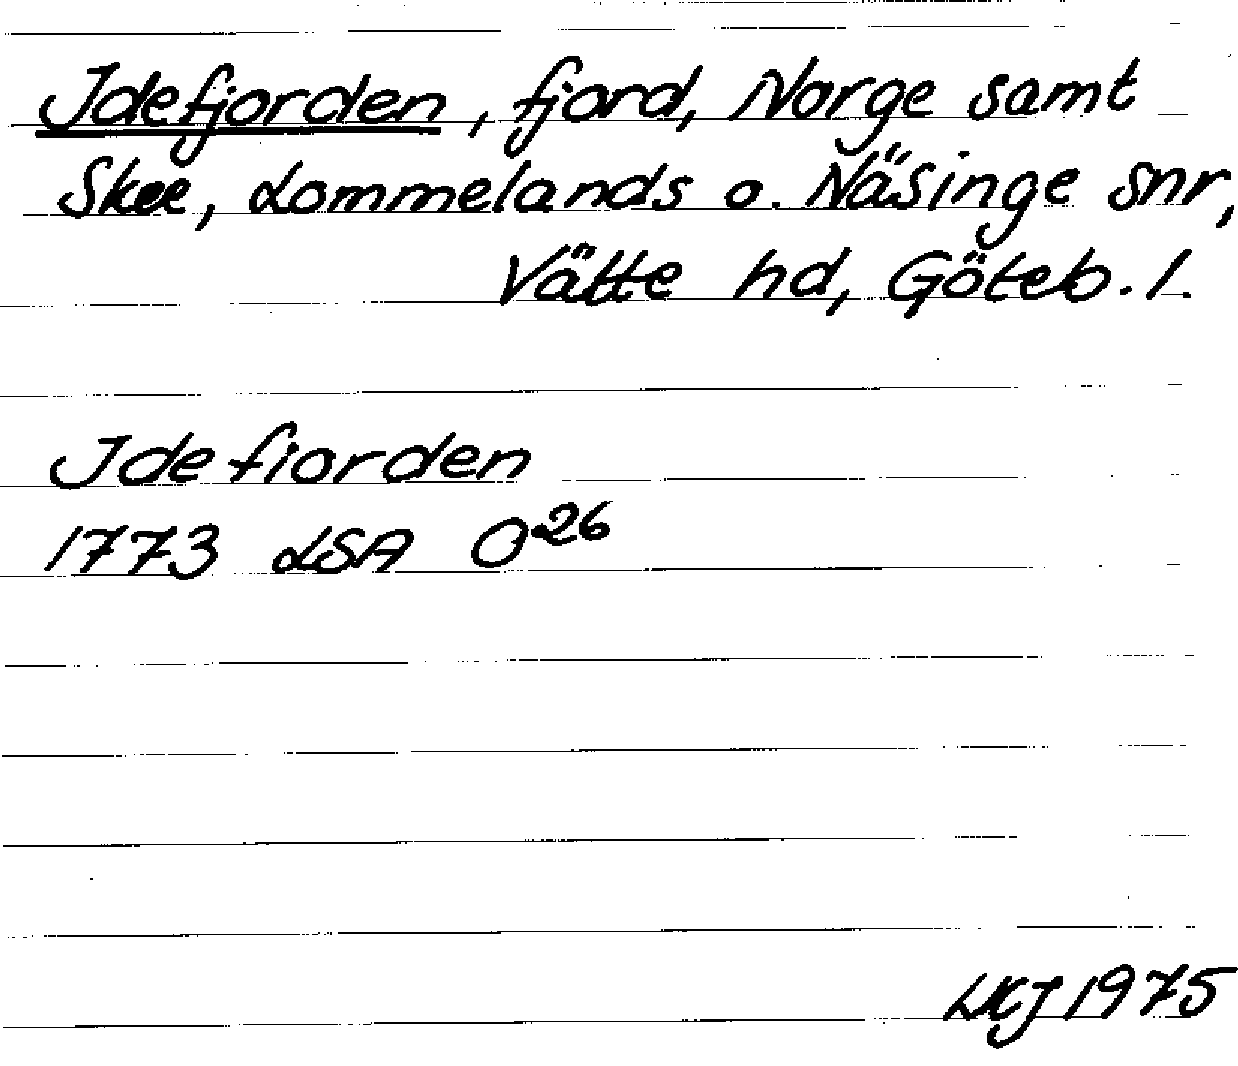 Idefjorden, fjord, Norge samt
Skee, Lommelands o. Näsinge snr,
Vätte hd, Göteb. l.
Idefiorden
1773 LSA O²⁶
LKJ 1975